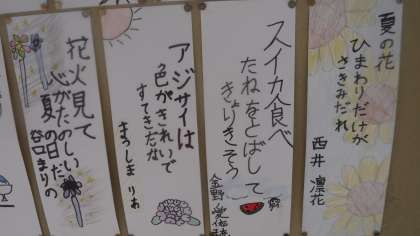 夏の花
ひまわりだけが
さきみだれ
西井 凛花
スイカ食べ
たねをとばして
きょりきそう
金野
アジサイは
色がきれいで
すてきだな
まつしま りお
花火見て
心がたのしい
夏の日だ
谷口まりの